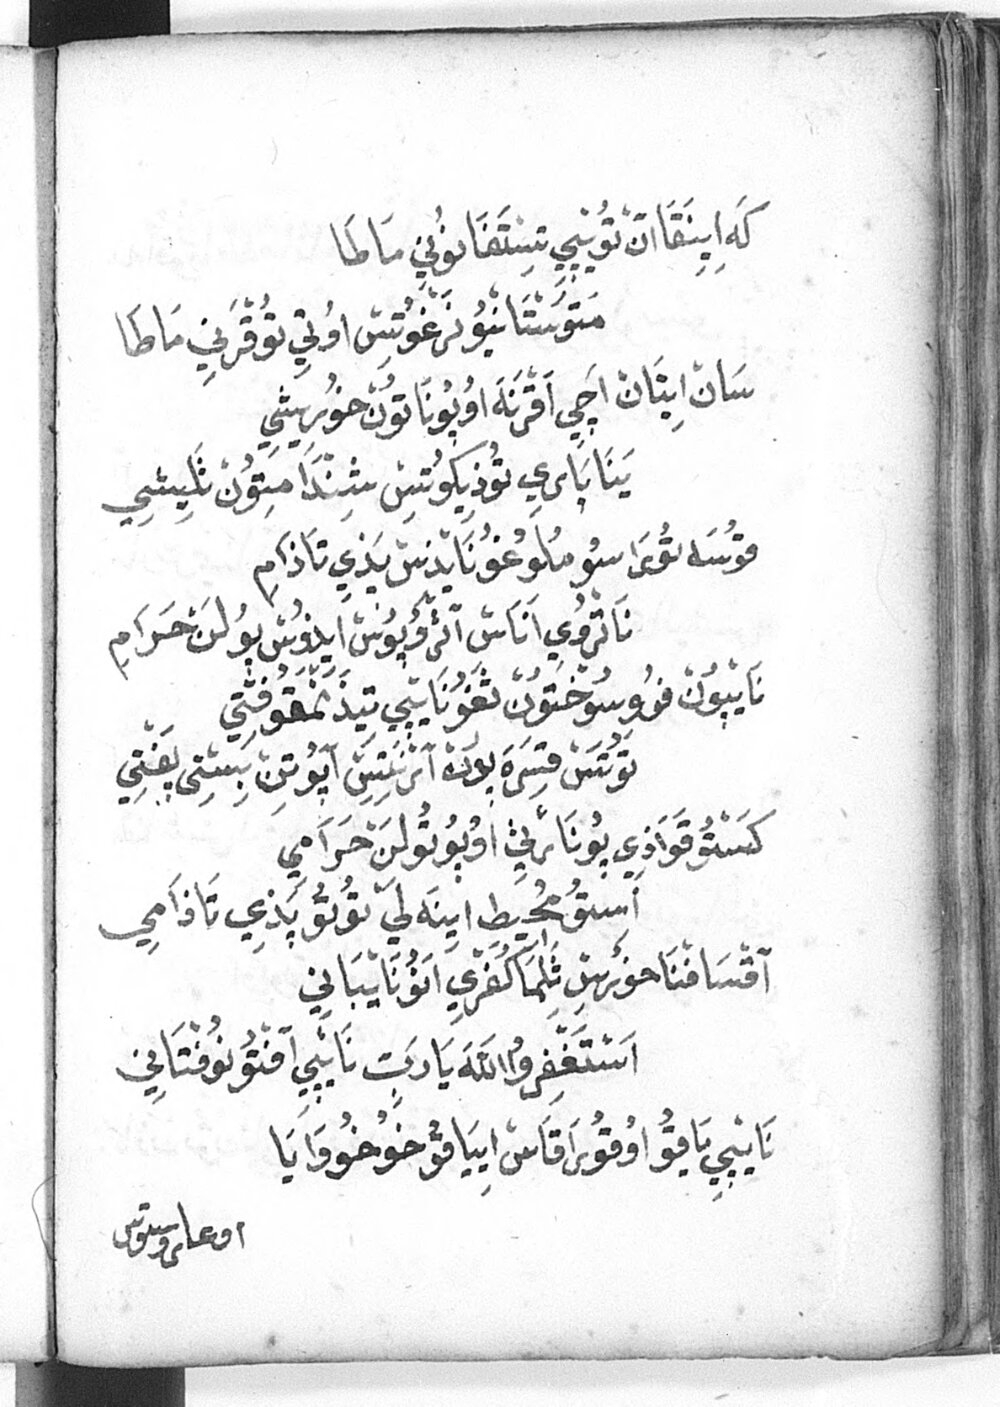 كَه اِينِقَا اتْ تُويْپِي تِسْتَفَانُونِي مَاطَا
مَتُوسْتَانِيُو نَرْغُوتِسْ اوُتِي تُوقْرَنِي مَاطَا
سَانْ اِيتَانْ اَچِي اَقْرَنَه اوُپُونَا تُونْ خُورِيشِي
يَنَا پَارِي تُوذِيكُوتِسْ شِنْدَا مَتُونْ تَلِيشِي
قُوسَه تُورَا سُو مُلُوغُونَا يْدِسْ پَذِي تَاذَامِ
نَاتْرُوِي اَنَاسْ آتْرُوپُوسْ ايذُوسْ پُولَنْ حَرَامِ
نَايْپُونْ فُورُوسُوخْتُونْ تَغَوُنَايْپِي تِيذَنْمَقُوفْتِي
تَوْتَسْ قِسَرَه پُونْ آرْنِتِسْ آپُوتِنْ بِسْتِي پَفْتِي
كَسْتُو قَوَاذِي پُونَارْثِي اوُپُوتُولَنْ حَرَامِي
اَسْتُو مُحِيطِ اِينَه لَيْ تُوتُو پَذِي تَاذَامِي
آقْسَافْنَا خَوْرِسْ ثَلِمَا كُفْرِي اَتُونَايْپَانِي
اَسْتَغْفِرُوا اللَّهَ يَا رَبِّ نَايْپِي آفْتُو نُوفْتَانِي
نَايْپِي يَاقُو اوُقُورَاقَاسْ اِيِيَا قُوخُو خُووَايَا